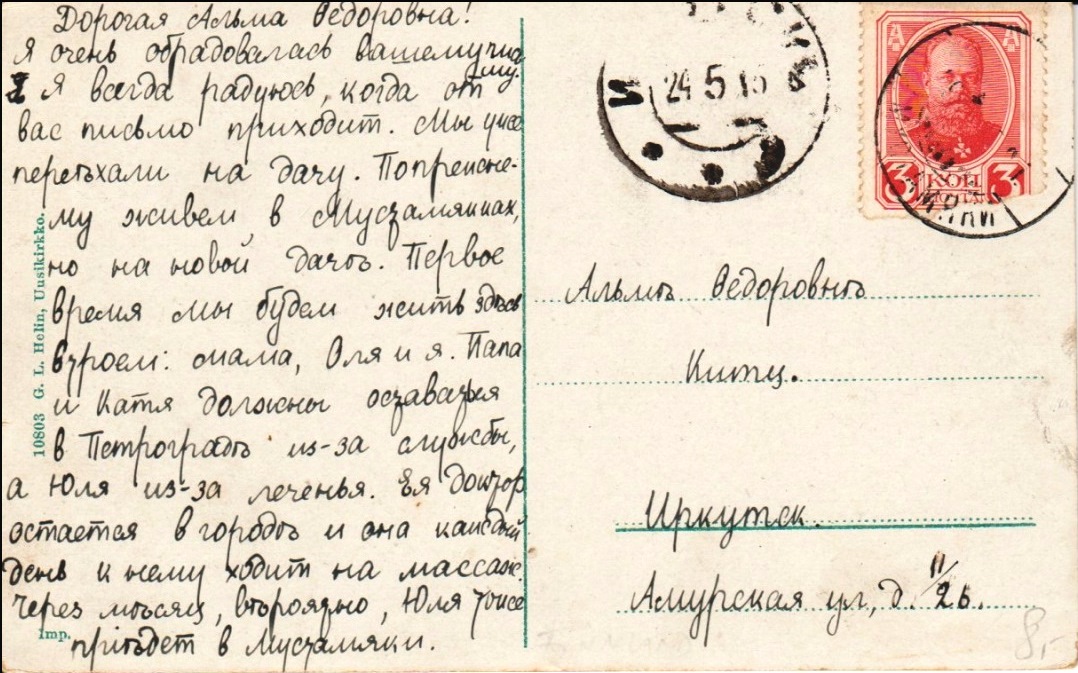 Дорогая Альма Ѳедоровна!
Я очень обрадовалась вашему письму.
Я всегда радуюсь, когда от
вас письмо приходит. Мы уже
переѣхали на дачу. Попрежне-
му живем в Мустамяках,
но на новой дачѣ. Первое
время мы будем жить здѣсь
втроем: мама, Оля и я. Папа
и Катя должны оставаться
в Петроградѣ из-за службы,
а Юля из-за леченья. Ея доктор
остается в городѣ и она каждый
день к нему ходит на массаж.
Через мѣсяц, вѣроятно, Юля тоже
приѣдет в Мустамяки.
10803 G. L. Helin, Uusikirkko.
Imp.
24 5 15
3 КОП 3
Альмѣ Ѳедоровнѣ
Китц.
Иркутск.
Амурская ул, д. 11/26.
8,-